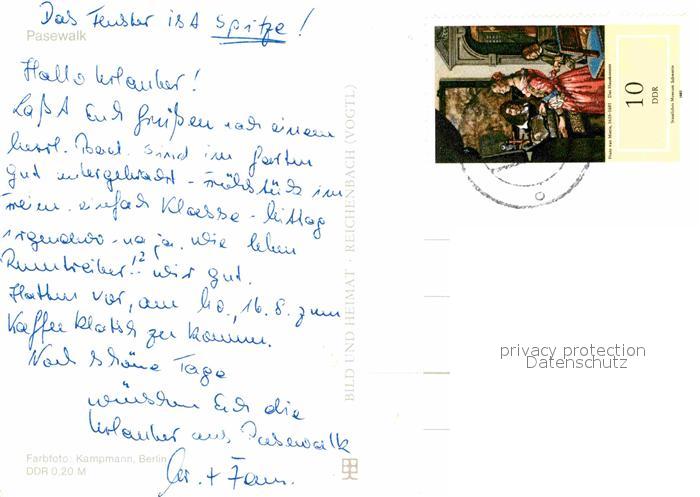 Das Fenster ist Spitze!
Pasewalk
Hallo Urlauber!
Laßt Euch Grüßen nach einem
herrl. Bad. sind im Garten
gut untergebracht - Frühstück im
Freien. einfach Klasse - Mittag
irgendwo - na ja. wie leben
Rumtreiber!? wir gut.
Hatten vor, am Mo., 16.8. zum
Kaffeeklatsch zu kommen.
Noch schöne Tage
wünschen Euch die
Urlauber aus Pasewalk
+ Fam.
Farbfoto: Kampmann, Berlin
DDR 0,20 M
BILD UND HEIMAT · REICHENBACH (VOGTL)
10
DDR
Frans van Mieris, 1635-1681 Das Hauskonzert
Staatliches Museum Schwerin
privacy protection
Datenschutz